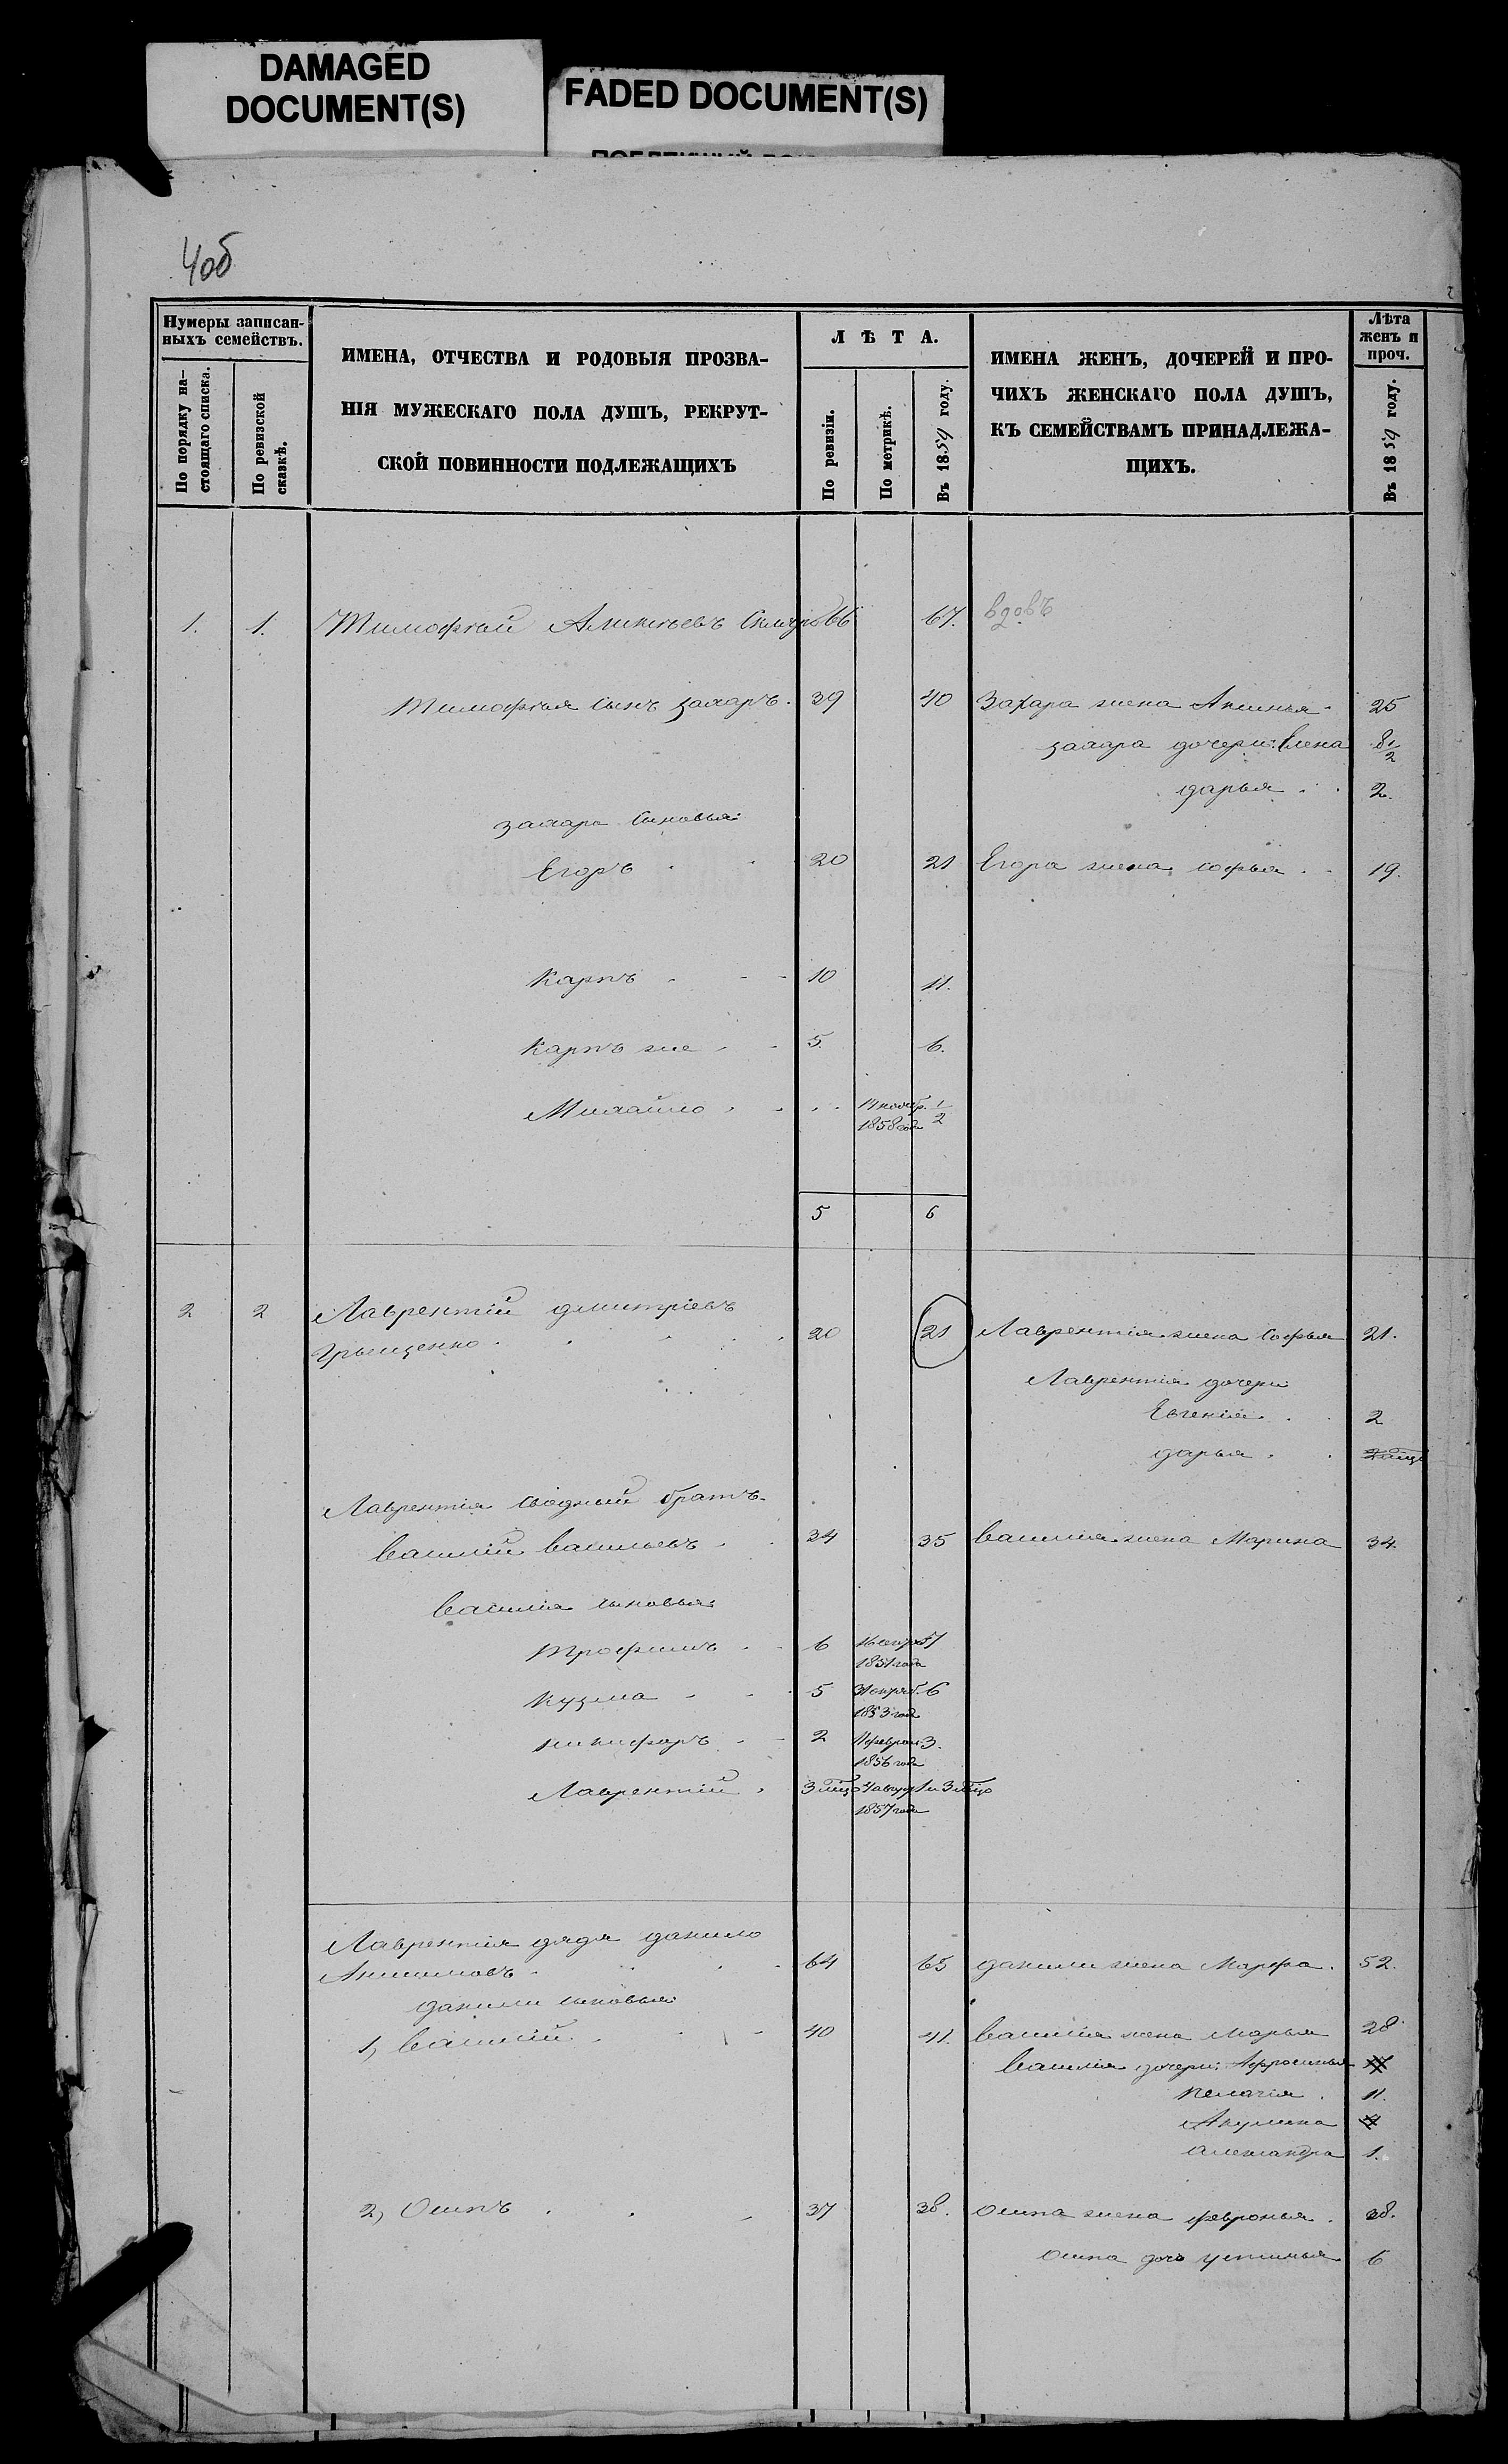 DAMAGED
DOCUMENT(S)
FADED DOCUMENT(S)
4об
Нумеры записан-
ныхъ семействъ.
По порядку на-
стоящаго списка.
По ревизской
сказкѣ.
ИМЕНА, ОТЧЕСТВА И РОДОВЫЯ ПРОЗВА-
НІЯ МУЖЕСКАГО ПОЛА ДУШЪ, РЕКРУТ-
СКОЙ ПОВИННОСТИ ПОДЛЕЖАЩИХЪ
ЛѢТА.
По ревизіи.
По метрикѣ.
Въ 1859 году.
ИМЕНА ЖЕНЪ, ДОЧЕРЕЙ И ПРО-
ЧИХЪ ЖЕНСКАГО ПОЛА ДУШЪ,
КЪ СЕМЕЙСТВАМЪ ПРИНАДЛЕЖА-
ЩИХЪ.
Лѣта
женъ и
проч.
Въ 1859 году.
1. 1. Тимофѣй 66 67. вдовъ
Тимофѣя сынъ захаръ. 39 40 Захара жена Аксинья 25
захара дочери: Елена 8 1/2
дарья 2.
захара сыновья:
Егоръ 20 21 Егора жена софья 19.
Карпъ 10 11.
Карпъ же 5. 6.
Михайло ноябр. 1/2
1858 года
5 6
2 2 Лаврентій дмитріевъ
Грыщенко 20 21 Лаврентія жена Софья 21.
Лаврентія дочери
Евгенія 2
дарья
Лаврентія сводный братъ
Василій Васильевъ 34 35 Василія жена Марина 34.
Василія сыновья:
Трофимъ 6 16 7
1851 года
Кузма 5 6
1853 года
никифоръ 2 феврал 3.
1856 года
Лаврентій 3 мѣс 1 и 3 мѣс
1857 года
Лаврентія дядя данило
Анисимовъ 64 65 данилы жена Марфа. 52.
данилы сыновья:
1, Василій 40 41. Василія жена Марья 28
Василія дочери: Афросинья
Пелагія 11.
Акулина
александра 1.
2, Осипъ 37 38. осипа жена февронья 38.
осипа дочь устинья 6